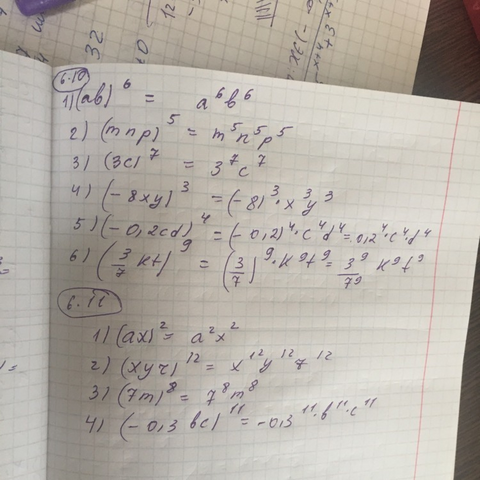 12
32
6.10
1) (ab)⁶ = a⁶b⁶
2) (mnp)⁵ = m⁵n⁵p⁵
3) (3c)⁷ = 3⁷c⁷
4) (-8xy)³ = (-8)³·x³y³
5) (-0,2cd)⁴ = (-0,2)⁴·c⁴d⁴ = 0,2⁴·c⁴d⁴
6) (3/7 kt)⁹ = (3/7)⁹·k⁹t⁹ = 3⁹/7⁹ k⁹t⁹
6.11
1) (ax)² = a²x²
2) (xyz)¹² = x¹²y¹²z¹²
3) (7m)⁸ = 7⁸m⁸
4) (-0,3 bc)¹¹ = -0,3¹¹·b¹¹·c¹¹